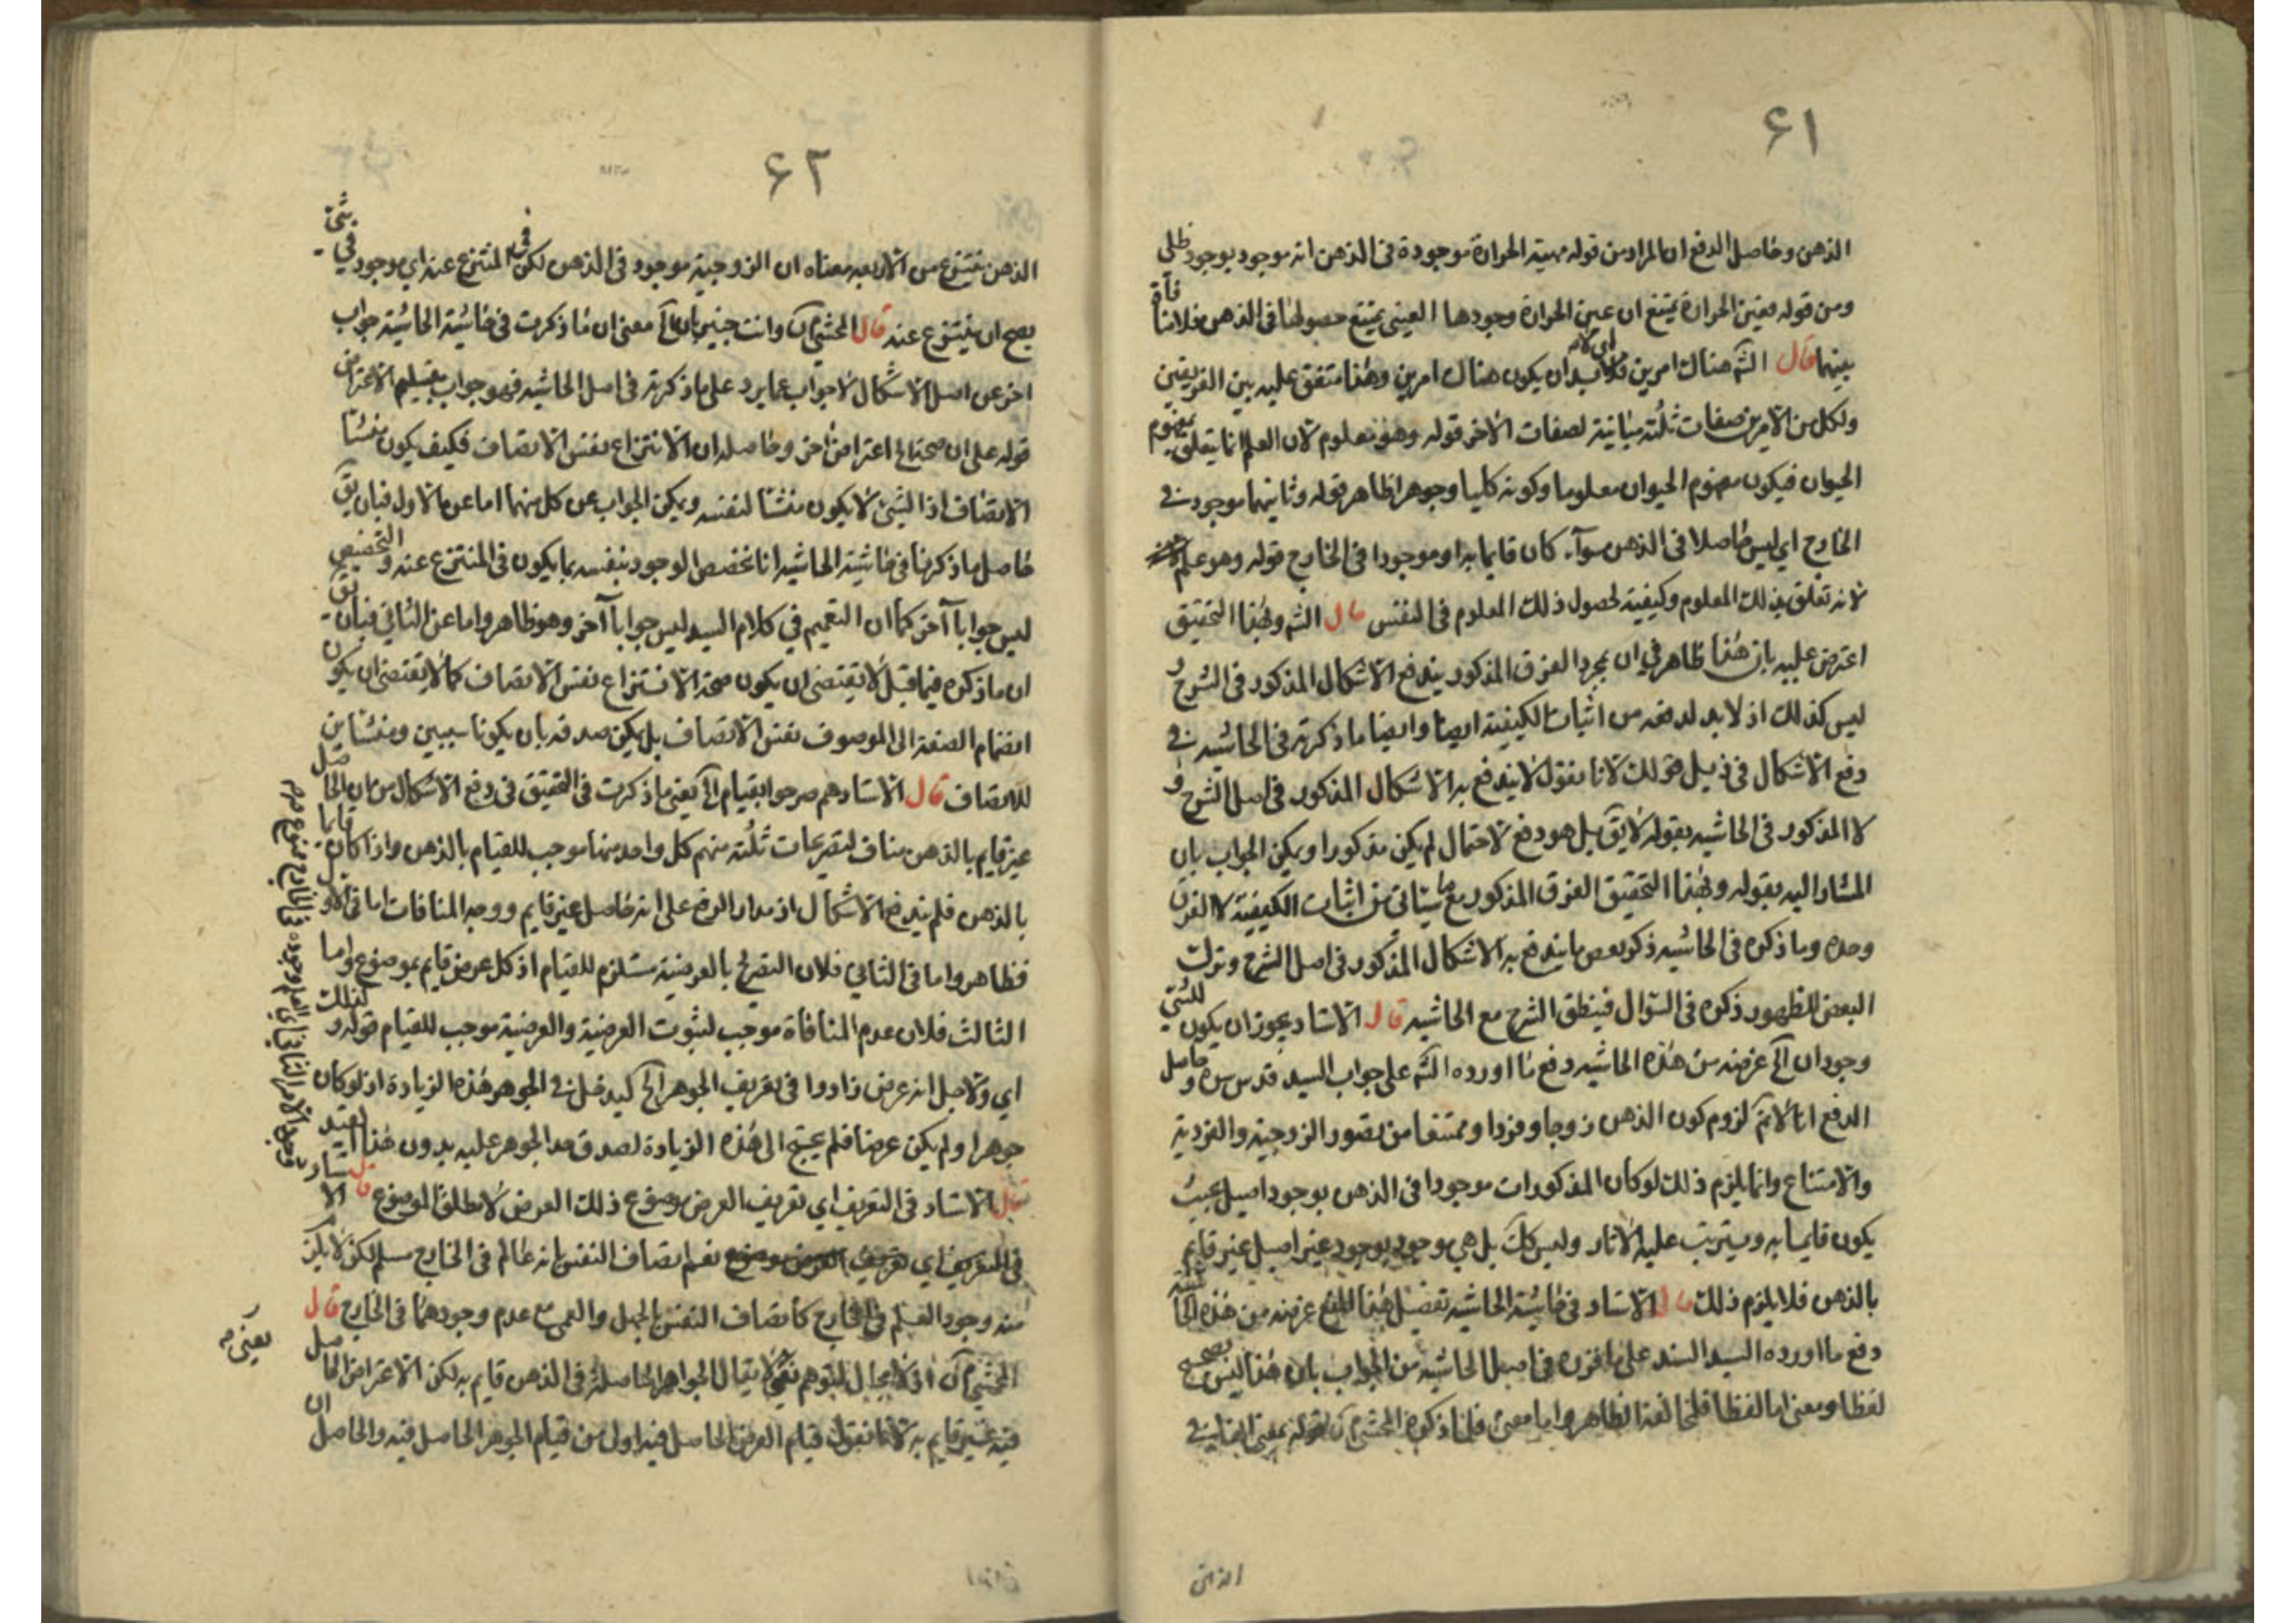 ۶۱
الذهن وحاصل الدفع ان المراد من قوله مهية الحرارة موجودة فى الذهن انه موجود بوجود ظلى
ومن قوله وعين الحرارة يمتنع ان عين الحرارة وجودها العينى يمتنع حصولها فى الذهن فلا منافاة
بينهما قال الش هناك امرين فلا بد ان يكون هناك امرين وهذا متفق عليه بين الفريقين
ولكل من الامرين صفات ثلثة مباينة لصفات الاخر قوله وهو معلوم لان العلم انما يتعلق بمفهوم
الحيوان فيكون مفهوم الحيوان معلوما وكونه كليا وجوهرا ظاهر قوله وثانيهما موجود فى
الخارج اى ليس حاصلا فى الذهن سوآء كان قايما به او موجودا فى الخارج قوله وهو علم
لانه تعلق بذلك المعلوم وكيفية لحصول ذلك المعلوم فى النفس قال الش وبهذا التحقيق
اعترض عليه بان هذا ظاهر فى ان بمجرد الفرق المذكور يندفع الاشكال المذكور فى الشرح و
ليس كذلك اذ لا بد لدفعه من اثبات الكيفية ايضا وايضا ما ذكرته فى الحاشيه فى
دفع الاشكال فى ذيل قولك لانا نقول لا يندفع به الاشكال المذكور فى اصل الشرح و
لا المذكور فى الحاشيه بقوله لا يق بل هو دفع لاحتمال لم يكن مذكورا ويمكن الجواب بان
المشار اليه بقوله وبهذا التحقيق الفرق المذكور مع ما سيأتى من اثبات الكيفية لا الفرق
وحده وما ذكره فى الحاشيه ذكر بعض ما يندفع به الاشكال المذكور فى اصل الشرح وترك
البعض للظهور ذكره فى السؤال فينطق الشرح مع الحاشيه قال الاستاد يجوز ان يكون للشئ
وجودان آلخ غرضه من هذه الحاشيه دفع ما اورده الش على جواب السيد قدس سره وحاصل
الدفع انا لانم لزوم كون الذهن زوجا وفردا وممتنعا من تصور الزوجية والفردية
والامتناع وانما يلزم ذلك لو كان المذكورات موجودا فى الذهن بوجود اصيل بحيث
يكون قايما به ويترتب عليه الاثار وليس كك بل هى موجود بوجود غير اصيل غير قايم
بالذهن فلا يلزم ذلك قال الاستاد فى حاشية الحاشيه تفصيل هذا غرضه من هذه
دفع ما اورده السيد السند على ما فى اصل الحاشيه من الجواب بان هذا ليس بصحيح
لفظا ومعنى اما لفظا فلمخالفة الظاهر واما معنى فلما ذكره المحشى
۶۲
الذهن ينتزع من الاربعه معناه ان الزوجية موجود فى الذهن لكن فى المنتزع عنه اى موجود فى شئ
يصح ان ينتزع عنه قال المحشى وانت خبير بان آلخ معنى ان ما ذكرت فى حاشية الحاشية جواب
اخر عن اصل الاشكال لا جواب عما يرد على ما ذكرته فى اصل الحاشيه فهو جواب بتسليم الاعتراض
قوله على ان صحة اعتراض اخر وحاصله ان الانتزاع نفس الاتصاف فكيف يكون منشأ
الاتصاف اذ الشئ لا يكون منشأ لنفسه ويمكن الجواب عن كل منهما اما عن الاول فبان يق
حاصل ما ذكرنا فى حاشية الحاشيه انا نخصص الوجود بنفسه بما يكون فى المنتزع عنه والتخصيص
ليس جوابا آخر كما ان التعميم فى كلام السيد ليس جوابا آخر وهو ظاهر واما عن الثانى فبان يق
ان ما ذكره فيما قبل لا يقتضى ان يكون صحة الانتزاع نفس الاتصاف كما لا يقتضى ان يكون
انضمام الصفة الى الموصوف نفس الاتصاف بل يمكن صدقه بان يكونا سببين ومنشأين
للاتصاف قال الاستاد هم صرحوا بقيام آلخ يعنى ما ذكرت فى التحقيق فى دفع الاشكال من ان الحاصل
غير قايم بالذهن مناف لتصريحات ثلثة منهم كل واحد منها موجب للقيام بالذهن واذا كان قايما
بالذهن فلم يندفع الاشكال اذ مدار الدفع على انه حاصل غير قايم ووجه المنافات اما فى الاول
فظاهر واما فى الثانى فلان التصريح بالعرضية مستلزم للقيام اذ كل عرض قايم بموضوع واما
الثالث فلان عدم المنافاة موجب لثبوت العرضية والعرضية موجب للقيام قوله ولذلك
اى ولاجل انه عرض زادوا فى تعريف الجوهر آلخ كيدخل فى الجوهر هذه الزيادة اذ لو كان
جوهرا ولم يكن عرضا فلم يحتج الى هذه الزيادة لصدق حد الجوهر عليه بدون هذا القيد
قال الاستاد فى التعريف اى تعريف العرض موضوع ذلك العرض لا مطلق الموضوع قال الاستاد
فى التعريف اى تعريف العرض موضوع نعم اتصاف النفس بانه عالم فى الخارج مسلم لكن لا يلزم
منه وجود العلم فى الخارج كاتصاف النفس بالجهل والعمى مع عدم وجودهما فى الخارج قال
المحشى لا مجال لتوهم لا يقال الجواهر الحاصلة فى الذهن قايم به لكن الاعتراض الحاصل
فيه غير قايم به لانا نقول قيام العرض الحاصل فيه اولى من قيام الجوهر الحاصل فيه والحاصل ان